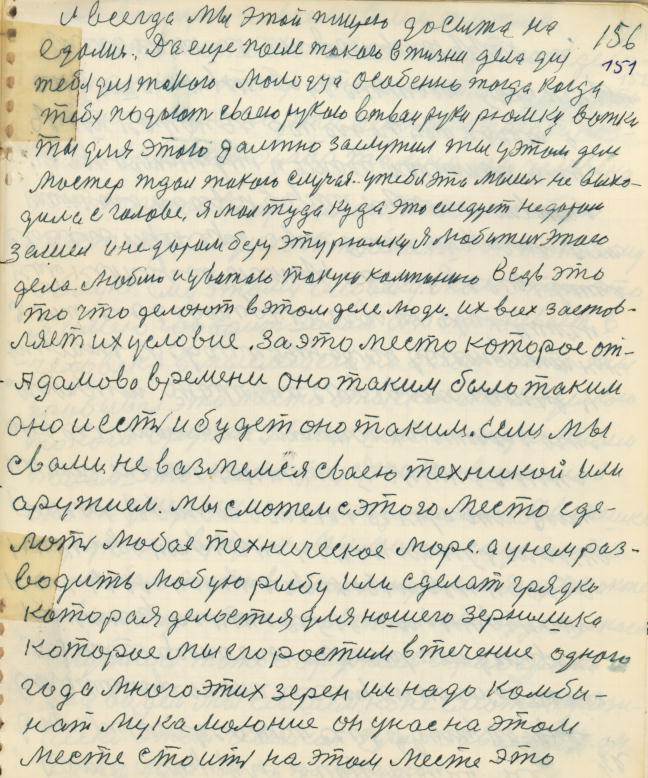 А всегда мы этой пищею досыта на 156
едались. Да еще после такого в жизни дела для 151
тебя для такого молодца особенно тогда когда
тебе подают сваею рукою в тваи руки рюмку вотки
ты для этого далжно заслужил ты у этом деле
мастер ждал такого случая. у тебя эта мысль не выхо-
дила с голове. я мол туда куда это следует недаром
залез и недаром беру эту рюмку я любитель этого
дела люблю и уважаю такую кампанию Ведь это
то что делают в этом деле люди. их всех застав-
ляет их условие. За это место которое от-
Адамово времени оно таким было таким
оно и есть и будет оно таким. Если мы
с вами не вазмемся сваею техникой или
аружием. мы сможем с этого место сде-
лать любое техническое море. а у нем раз-
водить любую рыбу или сделат грядка
которая делается для нашего зернышка
которое мы его ростим в течение одного
года много этих зерен им надо камби-
нат мукамолоние он у нас на этом
месте стоить на этом месте это